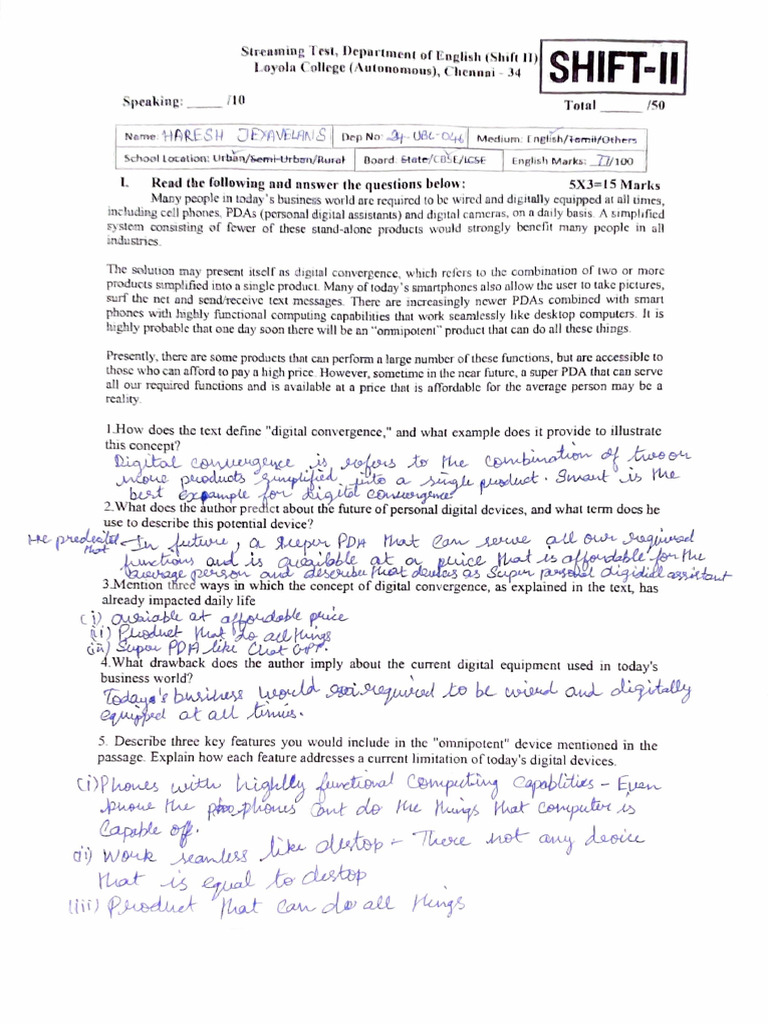 Streaming Test, Department of English (Shift II)
Loyola College (Autonomous), Chennai - 34
SHIFT-II
Speaking: _____ /10 Total ______ /50
Name: HARESH JEYAVELANS Dep No: 24-UBC-046 Medium: English/Tamil/Others
School Location: Urban/Semi-Urban/Rural Board: State/CBSE/ICSE English Marks: 77/100
I. Read the following and answer the questions below: 5X3=15 Marks
Many people in today's business world are required to be wired and digitally equipped at all times,
including cell phones, PDAs (personal digital assistants) and digital cameras, on a daily basis. A simplified
system consisting of fewer of these stand-alone products would strongly benefit many people in all
industries.
The solution may present itself as digital convergence, which refers to the combination of two or more
products simplified into a single product. Many of today's smartphones also allow the user to take pictures,
surf the net and send/receive text messages. There are increasingly newer PDAs combined with smart
phones with highly functional computing capabilities that work seamlessly like desktop computers. It is
highly probable that one day soon there will be an "omnipotent" product that can do all these things.
Presently, there are some products that can perform a large number of these functions, but are accessible to
those who can afford to pay a high price. However, sometime in the near future, a super PDA that can serve
all our required functions and is available at a price that is affordable for the average person may be a
reality.
1.How does the text define "digital convergence," and what example does it provide to illustrate
this concept?
Digital convergence is refers to the combination of two or
more products simplified into a single product. Smart is the
best example for digital convergence
2.What does the author predict about the future of personal digital devices, and what term does he
use to describe this potential device?
He predicated that - In future, a super PDA that can serve all our required
functions and is available at a price that is affordable for the
average person and describe that devices as Super personal digidial assistant
3.Mention three ways in which the concept of digital convergence, as explained in the text, has
already impacted daily life
(i) available at affordable price
(ii) Product that do all things
(iii) Super PDA like Chat GPT.
4.What drawback does the author imply about the current digital equipment used in today's
business world?
Today's business world required to be wierd and digitally
equipped at all times.
5. Describe three key features you would include in the "omnipotent" device mentioned in the
passage. Explain how each feature addresses a current limitation of today's digital devices.
(i) Phones with highlly functional Computing Capablities - Even
the phones cant do the things that computer is
Capable off.
(ii) Work seamless like destop - There not any device
that is equal to destop
(iii) Product that can do all things